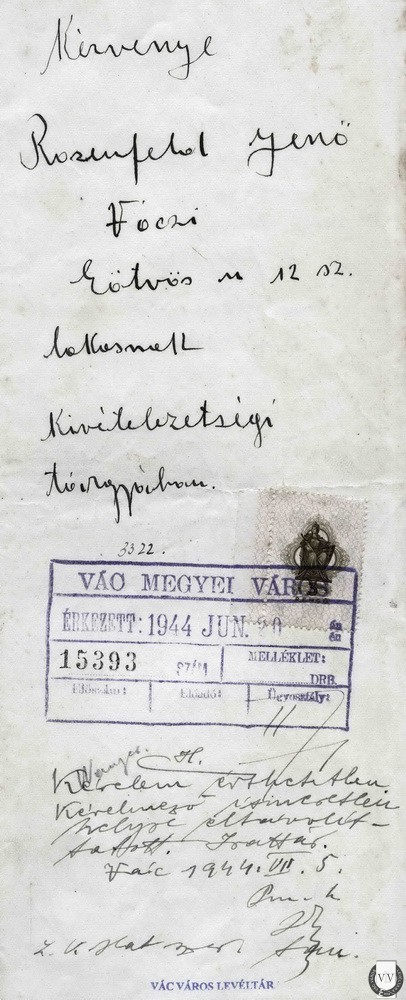 Kérvénye
Rosenfeld Jenő
Váczi
Eötvös u 12 sz.
lakosnak
Kivételezetségi
tárgyában.
3322.
VÁC MEGYEI VÁROS
ÉRKEZETT: 1944 JUN. 20 án én
15393 SZÁM MELLÉKLET:
DRB.
Előszám: Előadó: Ügyosztály:
II
H.
Kérelem
Kérelmező ismeretlen
helyre eltávolít-
tatott. Irattár.
Vác 1944. VII. 5.
VÁC VÁROS LEVÉLTÁR
VV